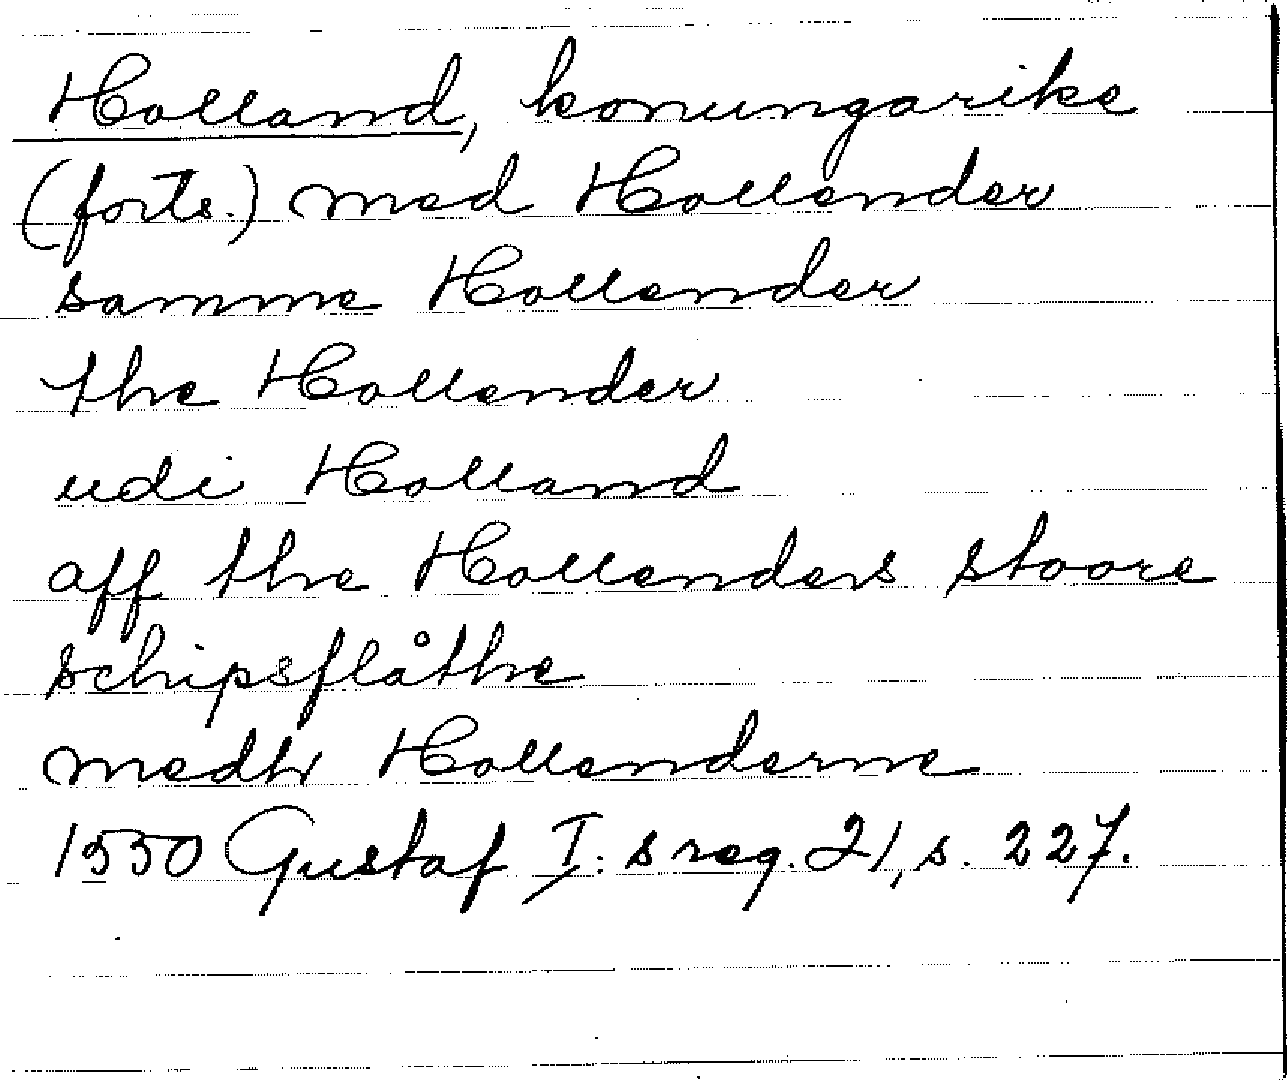 Holland, konungarike
(forts.) med Hollender
samme Hollender
the Hollender
udi Holland
aff the Hollenders stoore
schipsflåthe
medh Hollenderne
1550 Gustaf I:s reg. 21, s. 227.